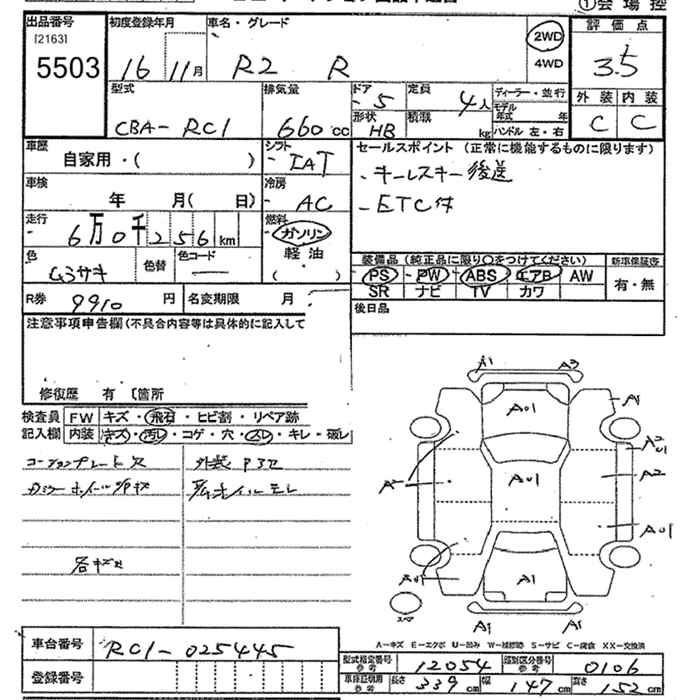 ①会場控
出品番号 初度登録年月 車名・グレード 評価点
[2163]
5503 16 11月 R2 R 2WD 4WD 3.5
型式 排気量 ドア 定員 ディーラー・並行 外装 内装
CBA-RC1 660cc 5 4人 モデル年式 年 C C
形状 HB 積載 kg ハンドル 左・右
車歴 シフト セールスポイント (正常に機能するものに限ります)
自家用・( ) IAT -キーレスキー後送
車検 冷房 -ETC付
年 月( 日) AC
走行 燃料
6万0千256km ガソリン
色 色替 色コード 軽油 装備品 (純正品に限り○をつけてください) 新車保証書
ムラサキ ( ) PS PW ABS エアB AW 有・無
SR ナビ TV カワ
R券 9910 円 名変期限 月 後日品
注意事項申告欄(不具合内容等は具体的に記入して
修復歴 有 〔箇所
検査員 FW キズ・飛石・ヒビ割・リペア跡
記入欄 内装 キズ・汚レ・コゲ・穴・スレ・キレ・破レ
A1 A3
A01 A1
A2 A01
A01 A2
A01
A01
A1
A1 A1
スペア
A-キズ E-エクボ U-凹み W-補修跡 S-サビ C-腐食 XX-交換済
車台番号 RC1-025445
型式指定番号 参考 12054 類別区分番号 参考 0106
登録番号
車庫証明用 参考 長さ 339cm 幅 147cm 高さ 152cm